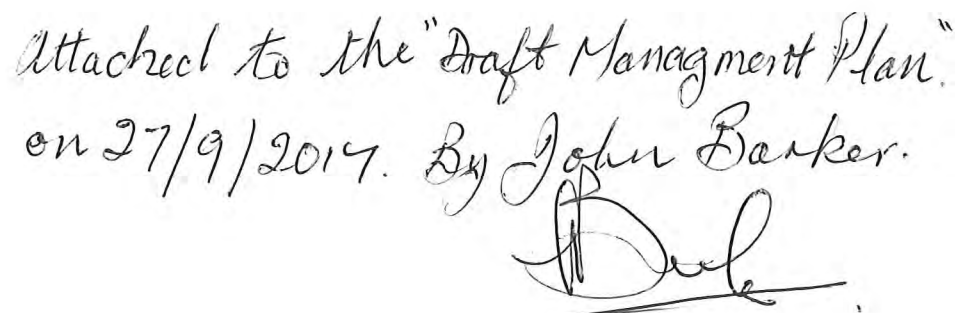 Attached to the "Draft Managment Plan."
on 27/9/2017. By John Barker.